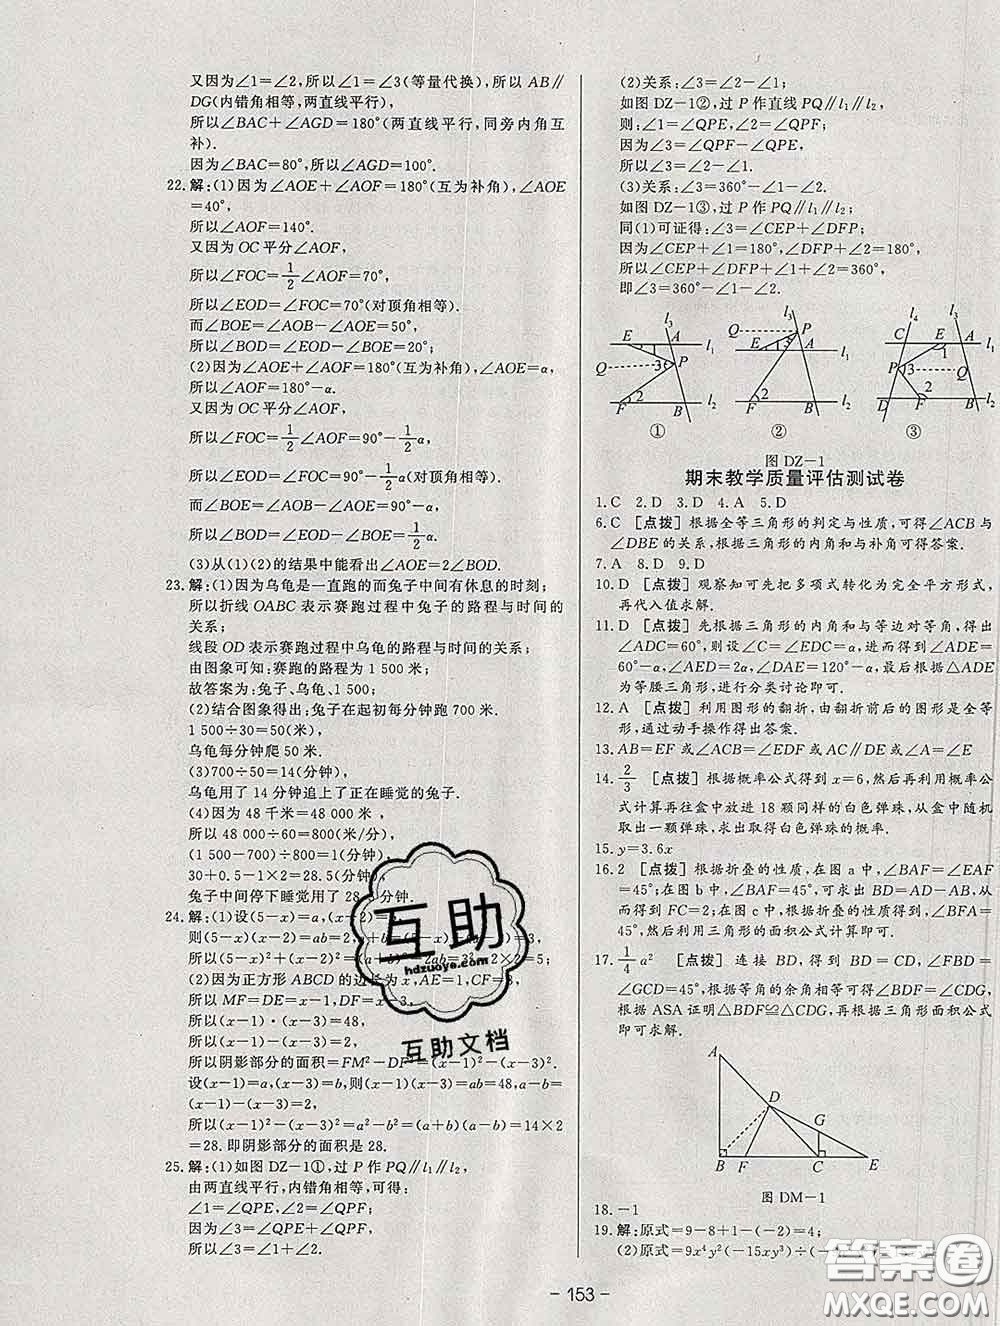 又因为∠1=∠2,所以∠1=∠3(等量代换),所以 AB∥
DG(内错角相等,两直线平行),
所以∠BAC+∠AGD=180°(两直线平行,同旁内角互
补).
因为∠BAC=80°,所以∠AGD=100°.
22.解:(1)因为∠AOE+∠AOF=180°(互为补角),∠AOE
=40°,
所以∠AOF=140°.
又因为 OC 平分∠AOF,
所以∠FOC=1/2∠AOF=70°,
所以∠EOD=∠FOC=70°(对顶角相等).
而∠BOE=∠AOB−∠AOE=50°,
所以∠BOD=∠EOD−∠BOE=20°;
(2)因为∠AOE+∠AOF=180°(互为补角),∠AOE=α,
所以∠AOF=180°−α.
又因为 OC 平分∠AOF,
所以∠FOC=1/2∠AOF=90°−1/2α,
所以∠EOD=∠FOC=90°−1/2α(对顶角相等).
而∠BOE=∠AOB−∠AOE=90°−α,
所以∠BOD=∠EOD−∠BOE=1/2α;
(3)从(1)(2)的结果中能看出∠AOE=2∠BOD.
23.解:(1)因为乌龟是一直跑的而兔子中间有休息的时刻;
所以折线 OABC 表示赛跑过程中兔子的路程与时间的
关系;
线段 OD 表示赛跑过程中乌龟的路程与时间的关系;
由图象可知:赛跑的路程为 1 500 米;
故答案为:兔子、乌龟、1 500;
(2)结合图象得出:兔子在起初每分钟跑 700 米.
1 500÷30=50(米),
乌龟每分钟爬 50 米.
(3)700÷50=14(分钟),
乌龟用了 14 分钟追上了正在睡觉的兔子.
(4)因为 48 千米=48 000 米,
所以 48 000÷60=800(米/分),
(1 500−700)÷800=1(分钟),
30+0.5−1×2=28.5(分钟),
兔子中间停下睡觉用了 28.5 分钟.
24.解:(1)设(5−x)=a,(x−2)=
则(5−x)(x−2)=ab=2,a+b=(5−x)+(x−2)=3,
所以(5−x)²+(x−2)²=(a+b)²−2ab=3²−2×2=5;
(2)因为正方形 ABCD 的边长为 x,AE=1,CF=3,
所以 MF=DE=x−1,DF=x−3,
所以(x−1)·(x−3)=48,
所以(x−1)(x−3)=48,
所以阴影部分的面积=FM²−DF²=(x−1)²−(x−3)².
设(x−1)=a,(x−3)=b,则(x−1)(x−3)=ab=48,a−b=
(x−1)−(x−3)=2,
所以(x−1)²−(x−3)²=a²−b²=(a+b)(a−b)=14×2
=28.即阴影部分的面积是 28.
25.解:(1)如图 DZ−1①,过 P 作 PQ∥l₁∥l₂,
由两直线平行,内错角相等,可得:
∠1=∠QPE,∠2=∠QPF;
因为∠3=∠QPE+∠QPF,
所以∠3=∠1+∠2.
(2)关系:∠3=∠2−∠1;
如图 DZ−1②,过 P 作直线 PQ∥l₁∥l₂,
则:∠1=∠QPE,∠2=∠QPF;
因为∠3=∠QPF−∠QPE,
所以∠3=∠2−∠1.
(3)关系:∠3=360°−∠1−∠2.
如图 DZ−1③,过 P 作 PQ∥l₁∥l₂;
同(1)可证得:∠3=∠CEP+∠DFP;
因为∠CEP+∠1=180°,∠DFP+∠2=180°,
所以∠CEP+∠DFP+∠1+∠2=360°,
即∠3=360°−∠1−∠2.
l₃ E A l₁ Q 3 P F 2 B l₂ ①
l₃ Q P E 3 A l₁ F 2 B l₂ ②
l₄ l₃ C E A l₁ 1 P 3 Q 2 D F B l₂ ③
图 DZ−1
期末教学质量评估测试卷
1.C 2.D 3.D 4.A 5.D
6.C [点拨] 根据全等三角形的判定与性质,可得∠ACB
与∠DBE 的关系,根据三角形的内角和与补角可得答案.
7.A 8.D 9.D
10.D [点拨] 观察知可先把多项式转化为完全平方形式,
再代入值求解.
11.D [点拨] 先根据三角形的内角和与等边对等角,得出
∠ADC=60°,则设∠C=∠EDC=α,进而得到∠ADE=
60°−α,∠AED=2α,∠DAE=120°−α,最后根据△ADE
为等腰三角形,进行分类讨论即可.
12.A [点拨] 利用图形的翻折,由翻折前后的图形是全等
形,通过动手操作得出答案.
13.AB=EF 或∠ACB=∠EDF 或 AC∥DE 或∠A=∠E
14.2/3 [点拨] 根据概率公式得到 x=6,然后再利用概率公
式计算再往盒中放进 18 颗同样的白色弹珠,从盒中随机
取出一颗弹珠,求出取得白色弹珠的概率.
15.y=3.6x
16.2 [点拨] 根据折叠的性质,在图 a 中,∠BAF=∠EAF
=45°,在图 b 中,∠BAF=45°,可求出 BD=AD−AB,从
而得到 FC=2;在图 c 中,∠BAF=90°,得到∠BFA=
45°,然后利用三角形的面积公式计算即可.
17.1/4a² [点拨] 连接 BD,得到 BD=CD,∠FBD=
∠GCD=45°,根据等角的余角相等可得∠BDF=∠CDG,
根据 ASA 证明△BDF≌△CDG,再根据三角形面积公式
即可求解.
A D G B F C E
图 DM−1
18.−1
19.解:原式=9−8+1−(−2)=4;
(2)原式=9x⁴y²(−15xy³)÷(−
− 153 −
互助
hdzuoye.com
互助文档
答案圈
MXQE.COM